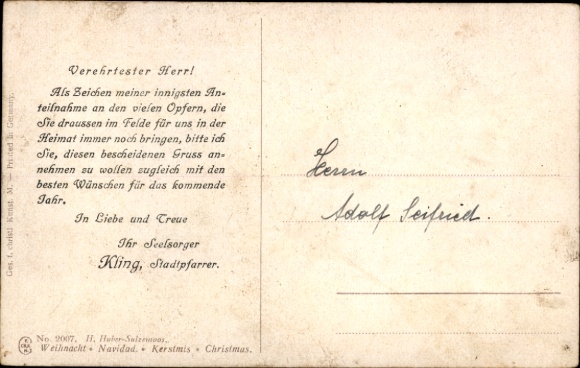 Verehrtester Herr!
Als Zeichen meiner innigsten An-
teilnahme an den vielen Opfern, die
Sie draussen im Felde für uns in der
Heimat immer noch bringen, bitte ich
Sie, diesen bescheidenen Gruss an-
nehmen zu wollen zugleich mit den
besten Wünschen für das kommende
Jahr.
In Liebe und Treue
Ihr Seelsorger
Kling, Stadtpfarrer.
Herrn
Adolf Seifried.
Ges. f. christl. Kunst, M. — Printed in Germany.
No. 2007. H. Huber-Sulzemoos.
Weihnacht • Navidad. • Kerstmis • Christmas.